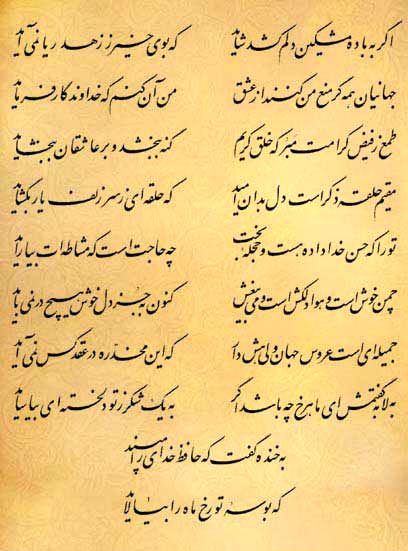 اگر به باده مشکین دلم کشد شاید که بوی خیر ز زهد ریا نمی آید
جهانیان همه گر منع من کنند از عشق من آن کنم که خداوندگار فرماید
طمع ز فیض کرامت مبر که خلق کریم گنه ببخشد و بر عاشقان ببخشاید
مقیم حلقه ذکر است دل بدان امید که حلقه ای ز سر زلف یار بگشاید
تو را که حسن خداداده هست و حجله بخت چه حاجت است که مشاطه ات بیاراید
چمن خوش است و هوا دلکش است و می بی غش کنون به جز دل خوش هیچ در نمی باید
جمیله ای است عروس جهان ولی هش دار که این مخدره در عقد کس نمی آید
به لابه گفتمش ای ماهرخ چه باشد اگر به یک شکر ز تو دلخسته ای بیاساید
به خنده گفت که حافظ خدای را مپسند
که بوسه تو رخ ماه را بیالاید